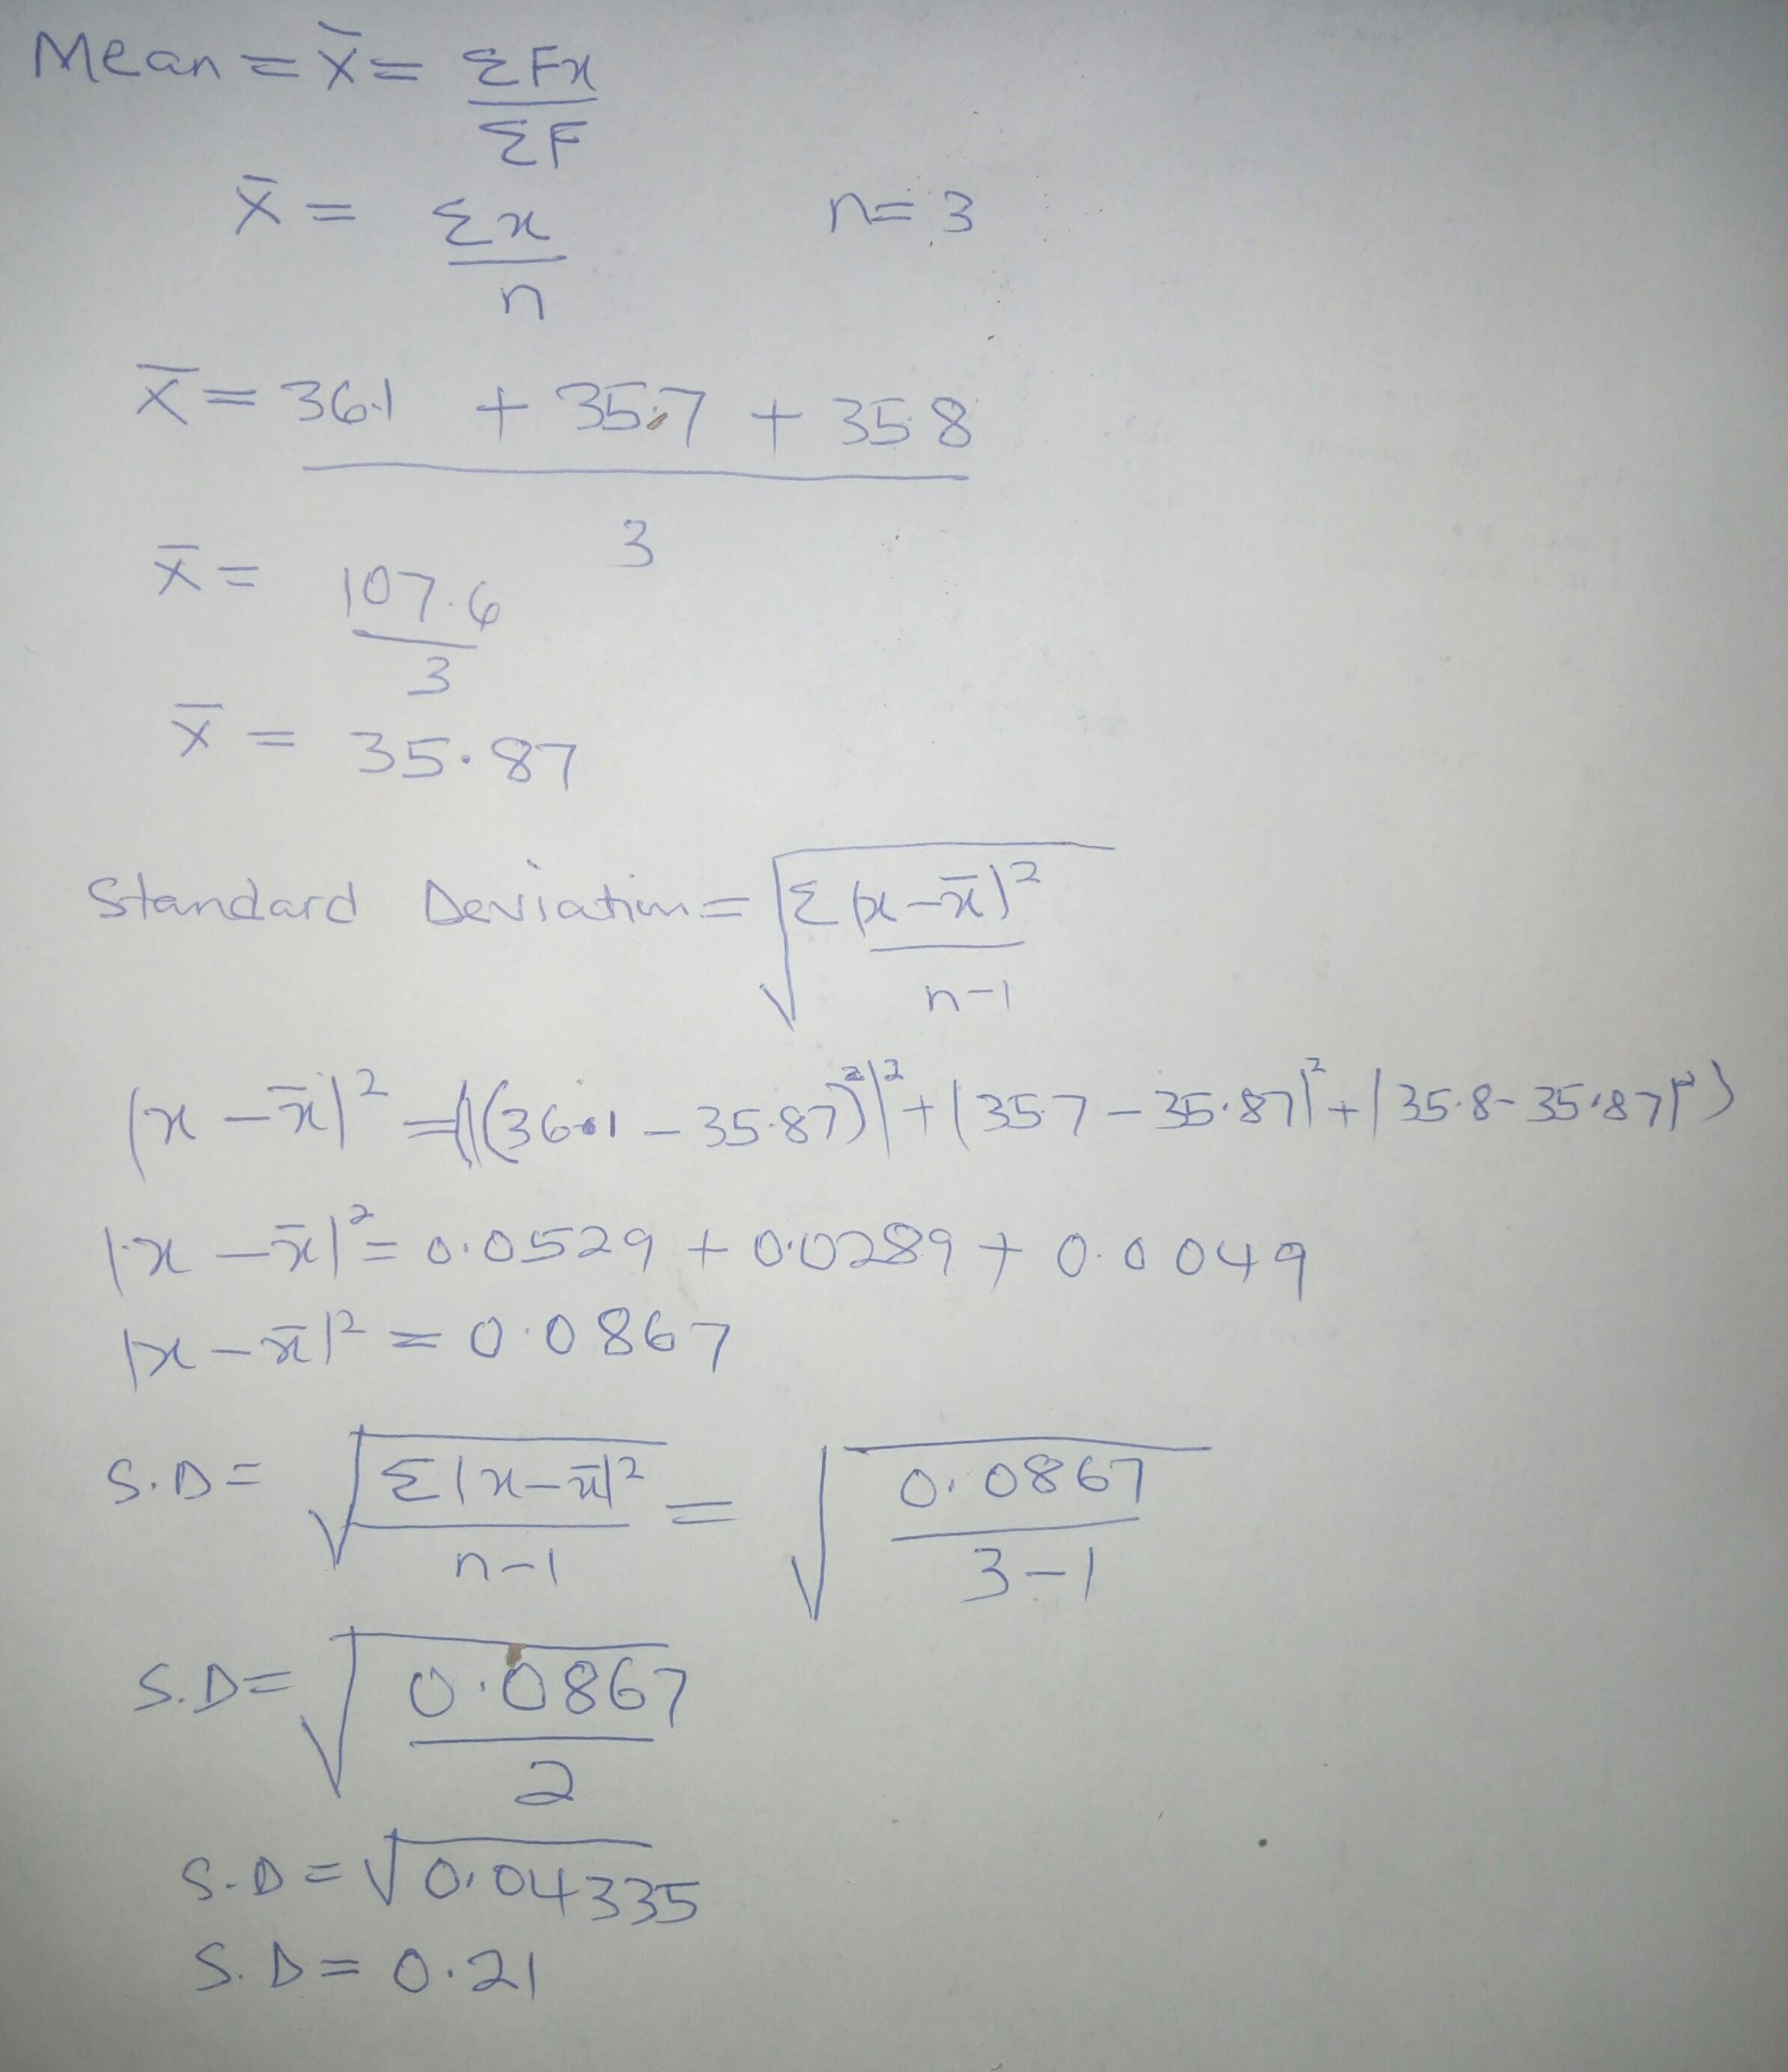 Mean = x̄ = ΣFx
ΣF
x̄ = Σx
n
n = 3
x̄ = 36.1 + 35.7 + 35.8
3
x̄ = 107.6
3
x̄ = 35.87
Standard Deviation = √Σ(x-x̄)²
n-1
(x-x̄)² = ((36.1 - 35.87)²)² + (35.7 - 35.87)² + (35.8 - 35.87)²)
(x-x̄)² = 0.0529 + 0.0289 + 0.0049
(x-x̄)² = 0.0867
S.D = √Σ(x-x̄)² = √0.0867
n-1 3-1
S.D = √0.0867
2
S.D = √0.04335
S.D = 0.21